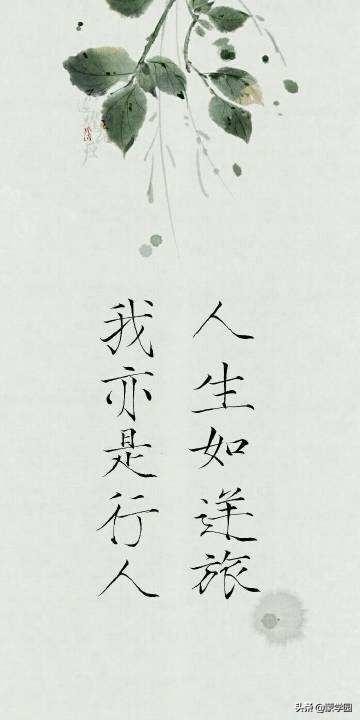 人生如逆旅
我亦是行人
头条 @蒙学园